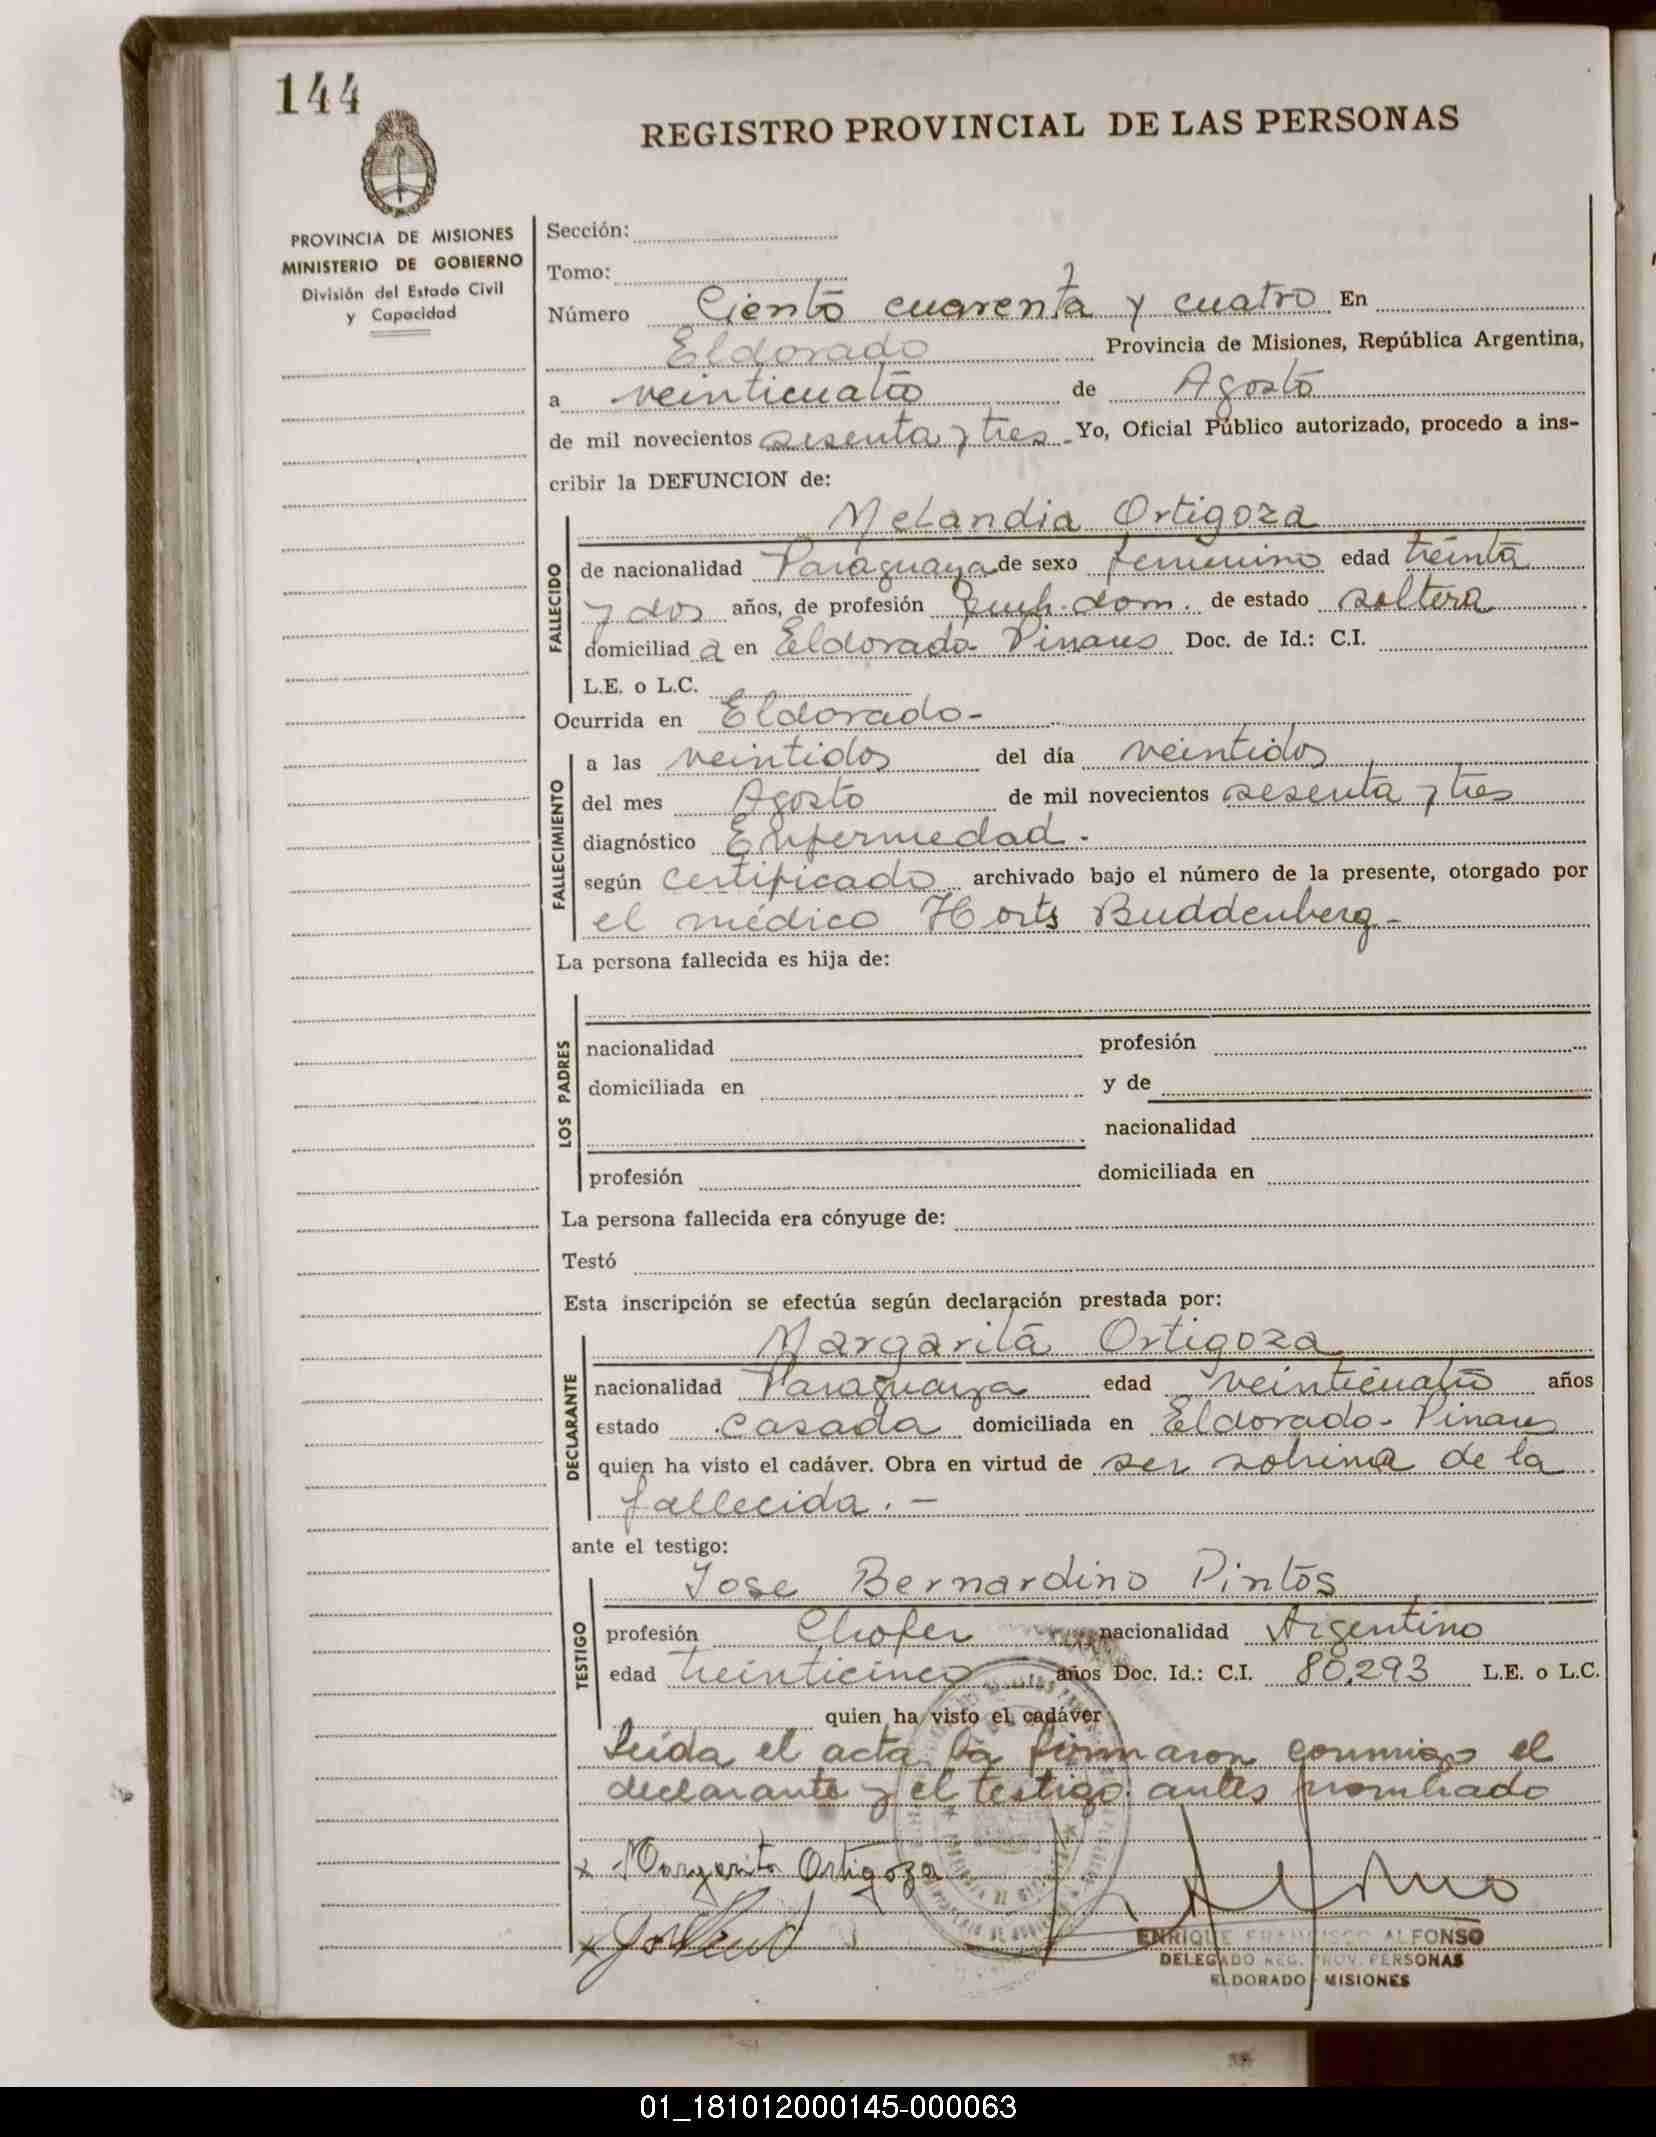 144
REGISTRO PROVINCIAL DE LAS PERSONAS
PROVINCIA DE MISIONES
MINISTERIO DE GOBIERNO
División del Estado Civil
y Capacidad
Sección:
Tomo:
Número Ciento cuarenta y cuatro En
Eldorado Provincia de Misiones, República Argentina,
a veinticuatro de Agosto
de mil novecientos sesenta y tres - Yo, Oficial Público autorizado, procedo a ins-
cribir la DEFUNCION de:
FALLECIDO
Melandia Ortigoza
de nacionalidad Paraguaya de sexo femenino edad treinta
y dos años, de profesión Queh. dom. de estado soltera
domiciliad a en Eldorado Pinares Doc. de Id.: C.I.
L.E. o L.C.
Ocurrida en Eldorado-
FALLECIMIENTO
a las veintidos del día veintidos
del mes Agosto de mil novecientos sesenta y tres
diagnóstico Enfermedad.
según certificado archivado bajo el número de la presente, otorgado por
el médico Horts Buddenberg-
La persona fallecida es hija de:
LOS PADRES
nacionalidad profesión
domiciliada en y de
nacionalidad
profesión domiciliada en
La persona fallecida era cónyuge de:
Testó
Esta inscripción se efectúa según declaración prestada por:
DECLARANTE
Margarita Ortigoza
nacionalidad Paraguaya edad veinticuatro años
estado casada domiciliada en Eldorado - Pinares
quien ha visto el cadáver. Obra en virtud de ser sobrina de la
fallecida. -
ante el testigo:
TESTIGO
Jose Bernardino Pintos
profesión Chofer nacionalidad Argentino
edad treinticinco años Doc. Id.: C.I. 80.293 L.E. o L.C.
quien ha visto el cadáver
Leída el acta la firmaron conmigo el
declarante y el testigo antes nombrado
x Margarita Ortigoza
ENRIQUE FRANCISCO ALFONSO
DELEGADO REG. PROV. PERSONAS
ELDORADO - MISIONES
01_181012000145-000063